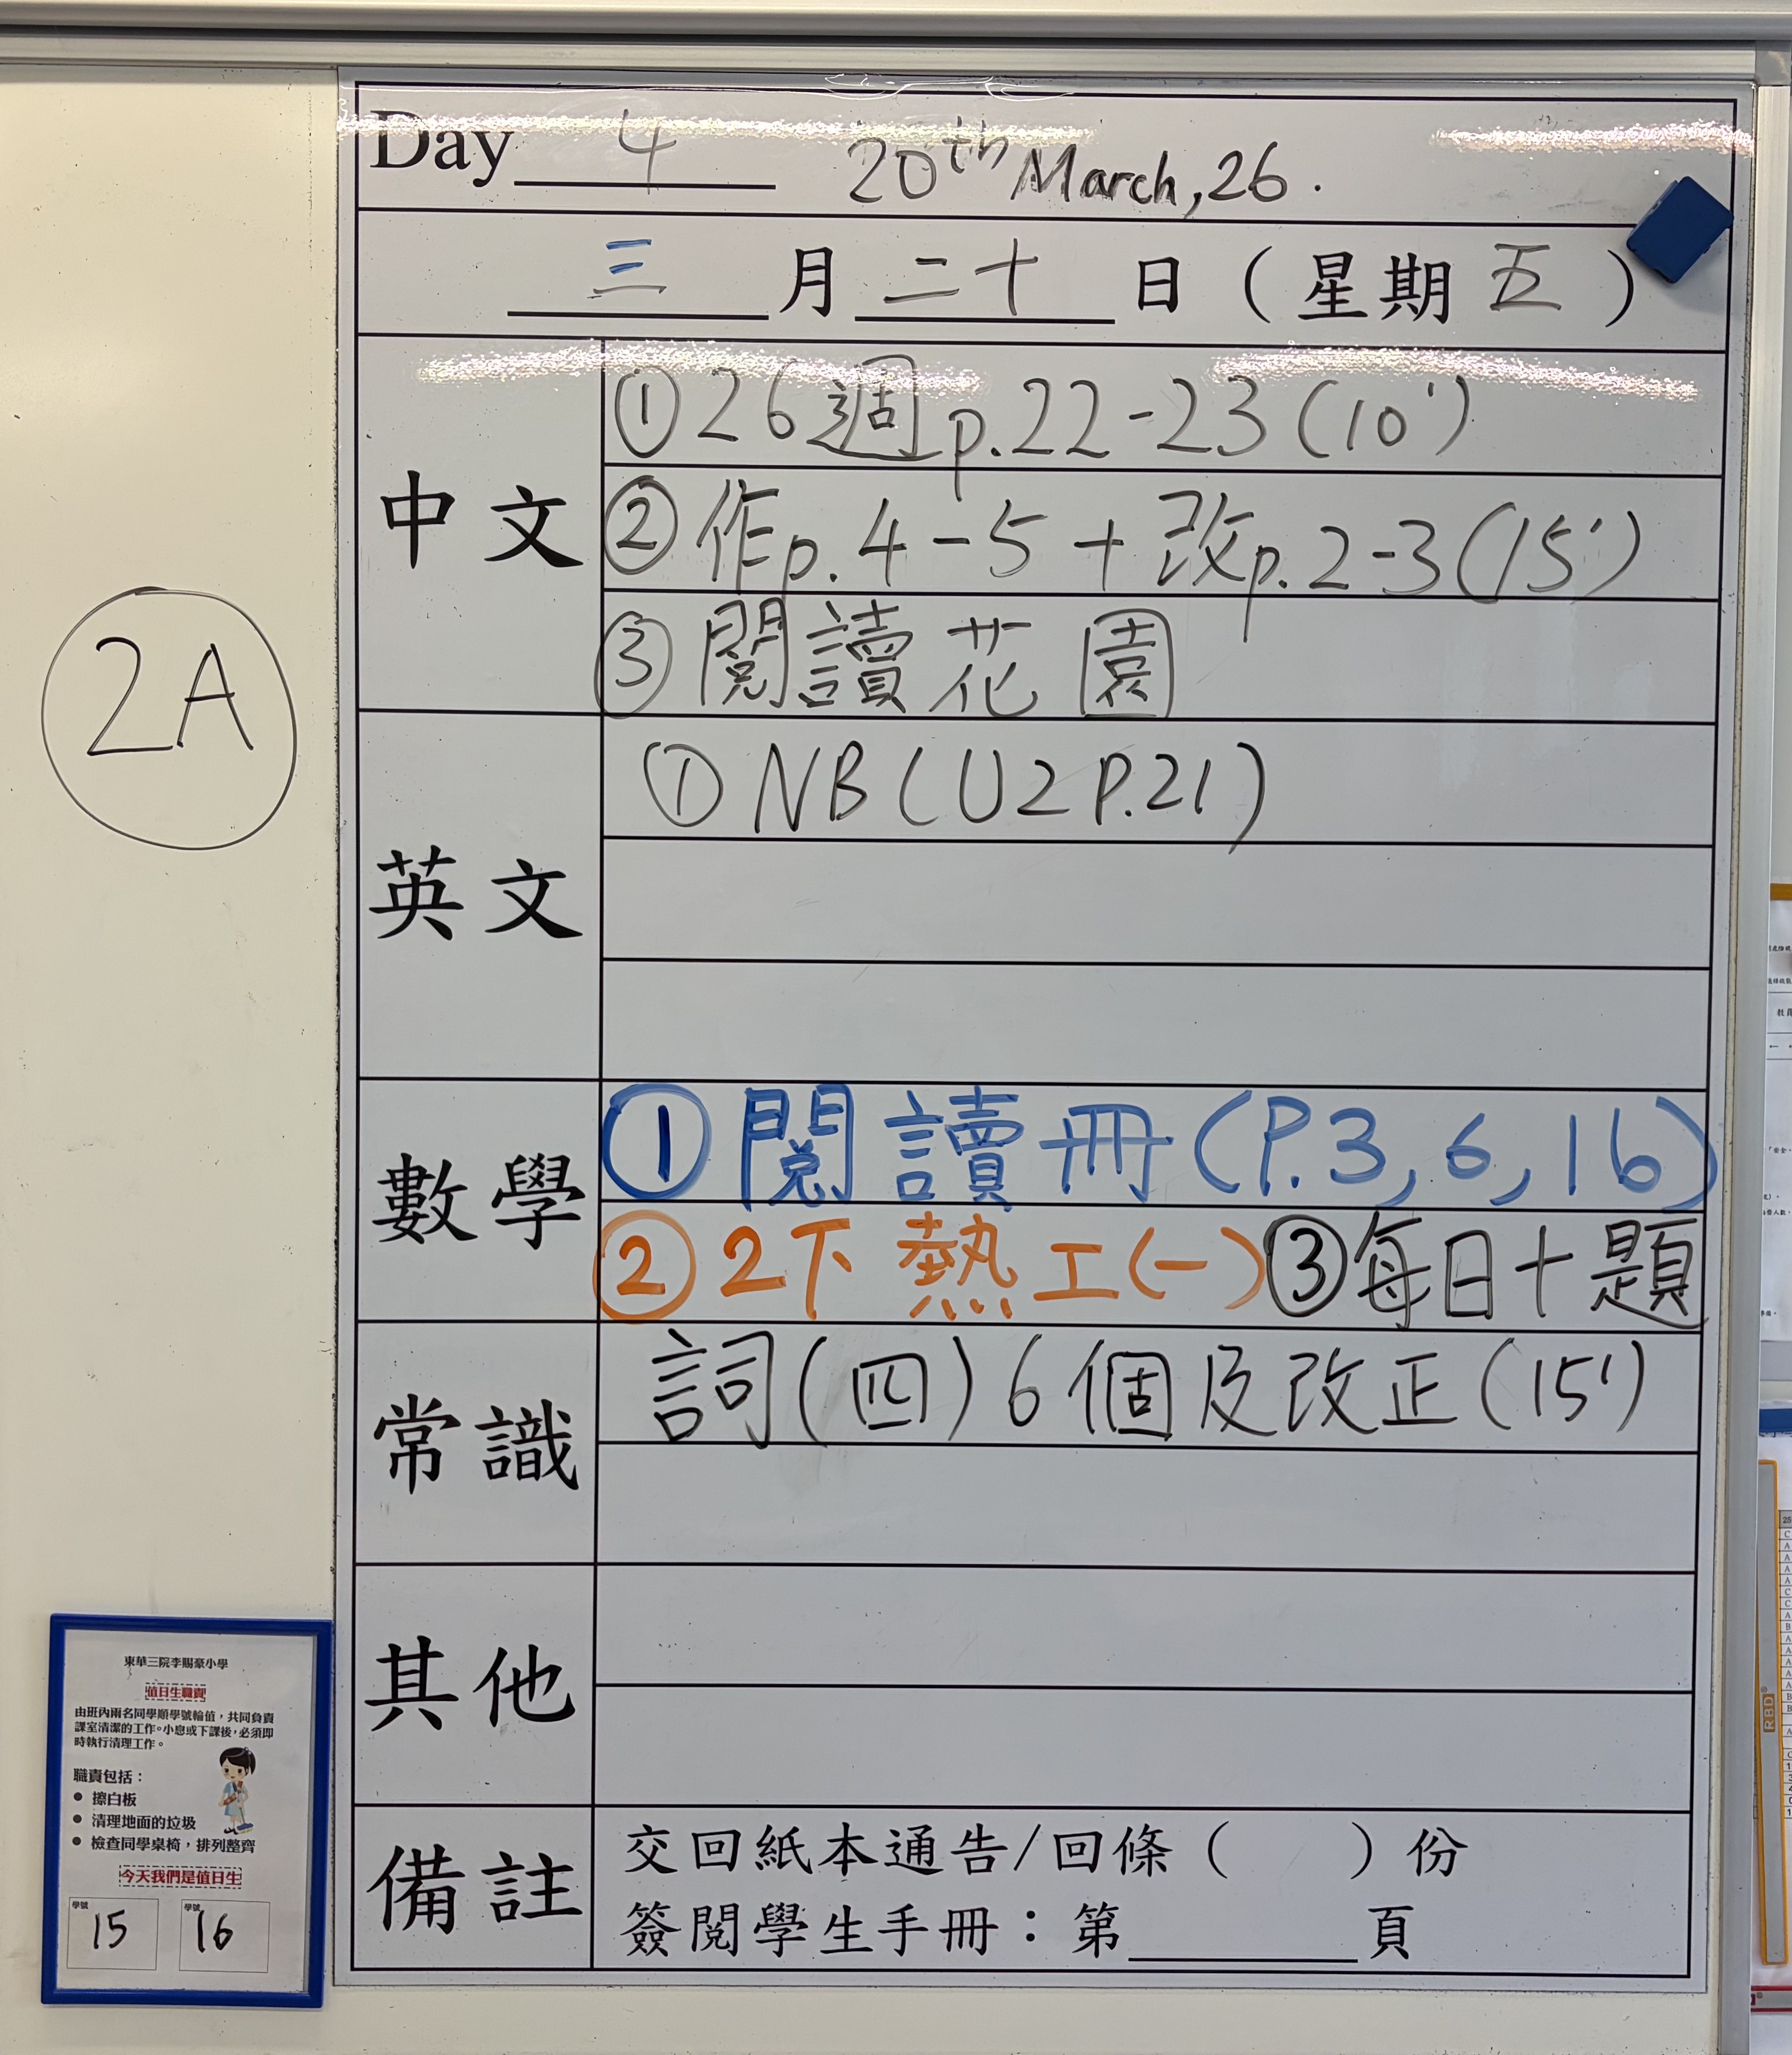 Day 4 20th March, 26.
三 月 二十 日 ( 星期 五 )
中文
① 26週 p.22-23 (10')
② 作p.4-5 + 改p.2-3 (15')
③ 閱讀花園
2A
英文
① NB (U2 P.21)
數學
① 閱讀冊 (P.3, 6, 16)
② 2下 熱工(一) ③ 每日十題
常識
詞(四) 6個及改正 (15')
其他
備註
交回紙本通告/回條 ( ) 份
簽閱學生手冊：第 頁
東華三院李賜豪小學
值日生職責
由班內兩名同學順學號輪值，共同負責
課室清潔的工作。小息或下課後，必須即
時執行清理工作。
職責包括：
● 擦白板
● 清理地面的垃圾
● 檢查同學桌椅，排列整齊
今天我們是值日生
學號 15 學號 16
RBD